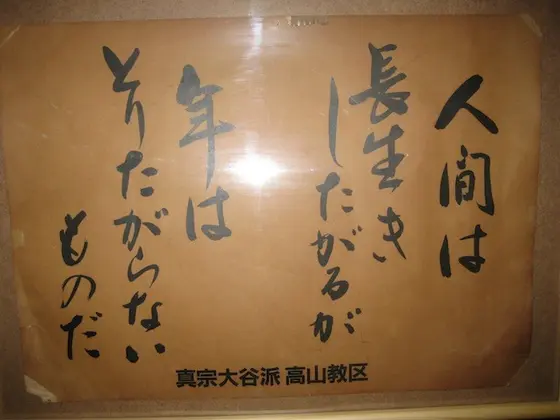 人間は
長生き
したがるが
年は
とりたがらない
ものだ
真宗大谷派 高山教区